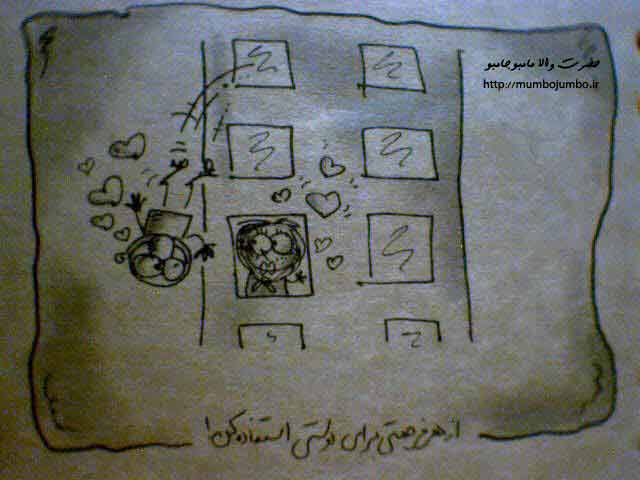 حضرت والا مامبو جامبو
http://mumbojumbo.ir
از هر فرصتی برای دوستی استفاده کن!